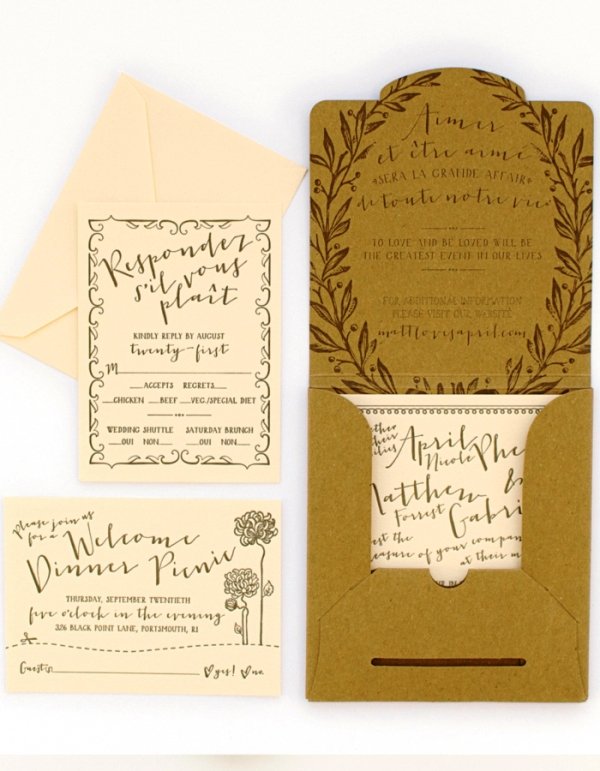 Respondez
s'il vous
plaît
KINDLY REPLY BY AUGUST
twenty-first
M
ACCEPTS REGRETS
CHICKEN BEEF VEG./SPECIAL DIET
WEDDING SHUTTLE SATURDAY BRUNCH
OUI NON OUI NON
Please join us
for a Welcome
Dinner Picnic
THURSDAY, SEPTEMBER TWENTIETH
five o'clock in the evening
326 BLACK POINT LANE, PORTSMOUTH, RI
Guests yes! no
Aimer
et être aimé
SERA LA GRANDE AFFAIR
de toute notre vie
TO LOVE AND BE LOVED WILL BE
THE GREATEST EVENT IN OUR LIVES
FOR ADDITIONAL INFORMATION
PLEASE VISIT OUR WEBSITE
mattlovesapril.com
April
Nicole Phe
Matthew &
Forrest Gabri
est the
easure of your compan
at their m